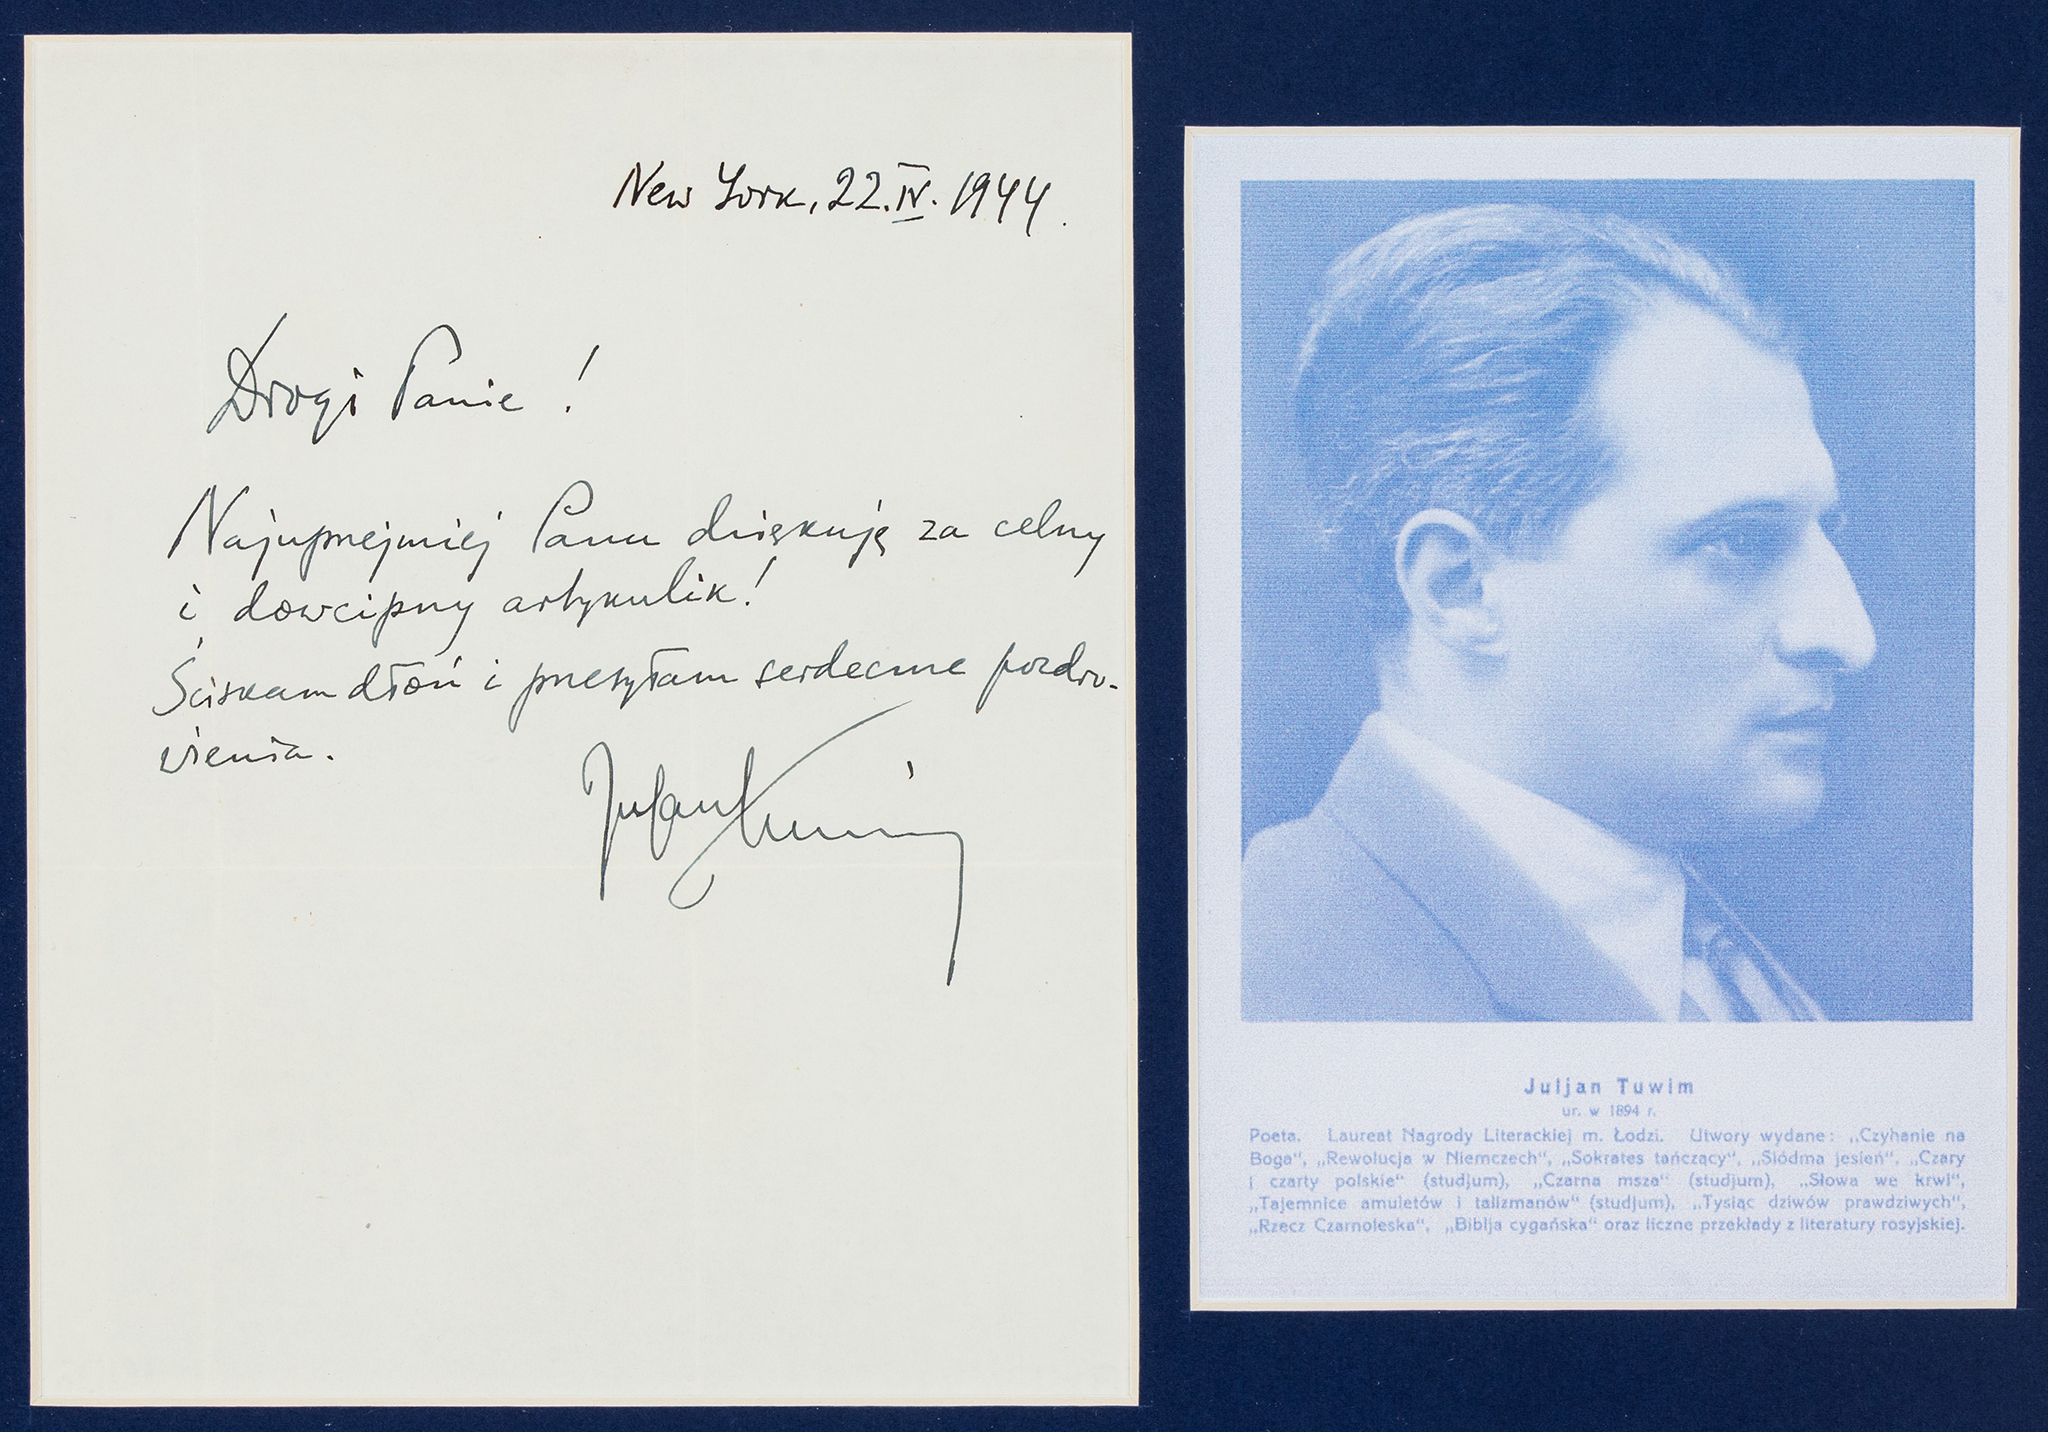 New York, 22.IV.1944.
Drogi Panie!
Najuprzejmiej Panu dziękuję za celny
i dowcipny artykulik!
Ściskam dłoń i przesyłam serdeczne pozdro-
wienia.
Julian Tuwim
Juljan Tuwim
ur. w 1894 r.
Poeta. Laureat Nagrody Literackiej m. Łodzi. Utwory wydane: „Czyhanie na
Boga“, „Rewolucja w Niemczech“, „Sokrates tańczący“, „Siódma jesień“, „Czary
i czarty polskie“ (studjum), „Czarna msza“ (studjum), „Słowa we krwi“,
„Tajemnice amuletów i talizmanów“ (studjum), „Tysiąc dziwów prawdziwych“,
„Rzecz Czarnoleska“, „Biblja cygańska“ oraz liczne przekłady z literatury rosyjskiej.